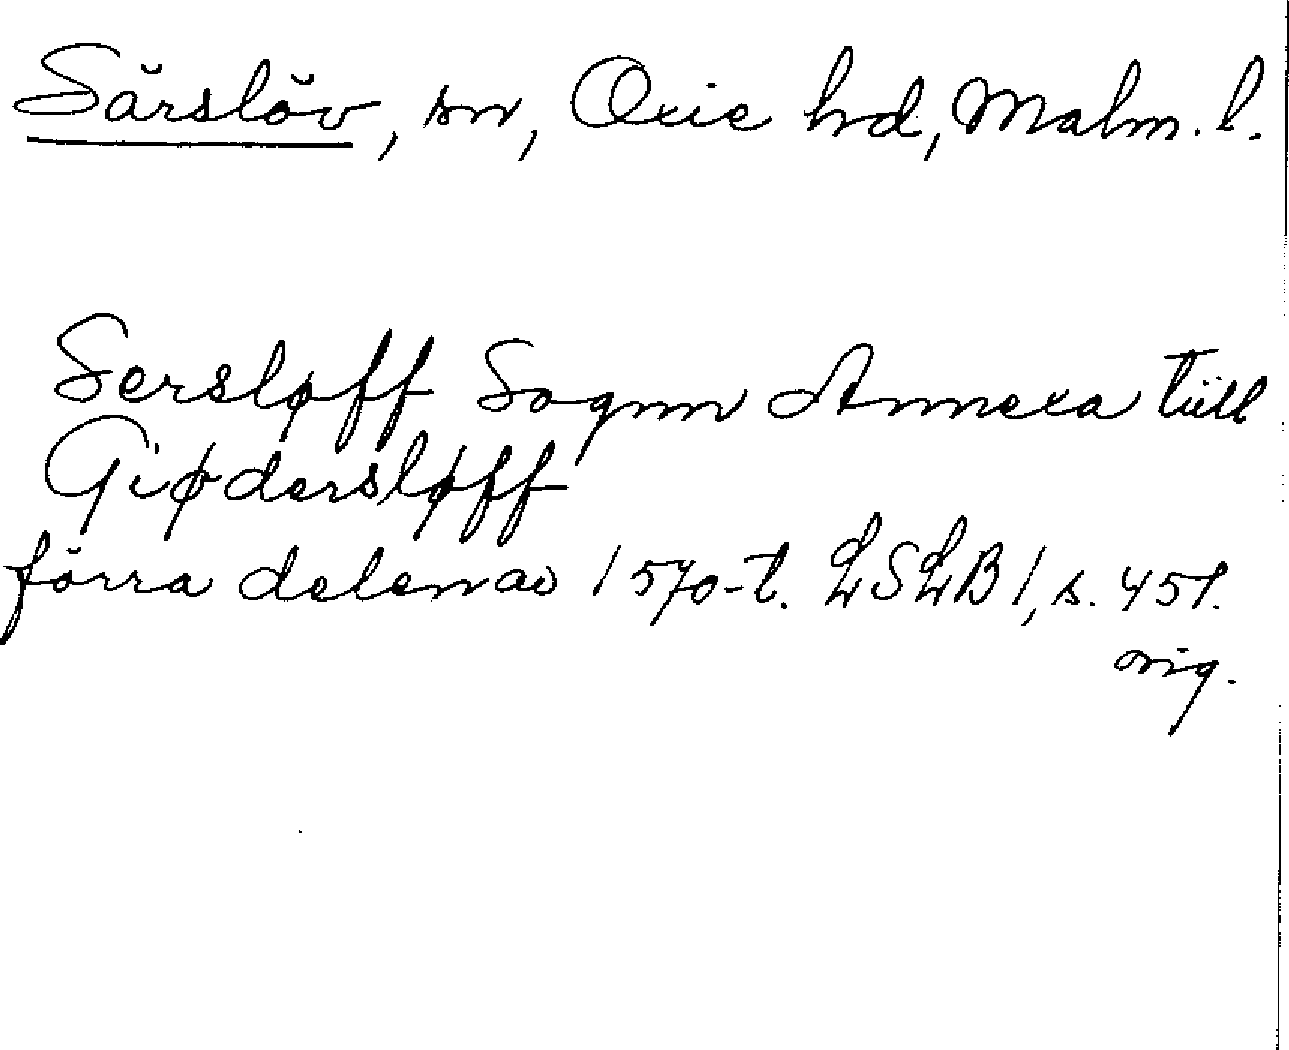 Särslöv, sn, Oxie hd, Malm. l.
Sersløff Sognn Annexa tiill
Giødersløff
förra delen av 1570-t. LSLB 1, s. 451.
orig.